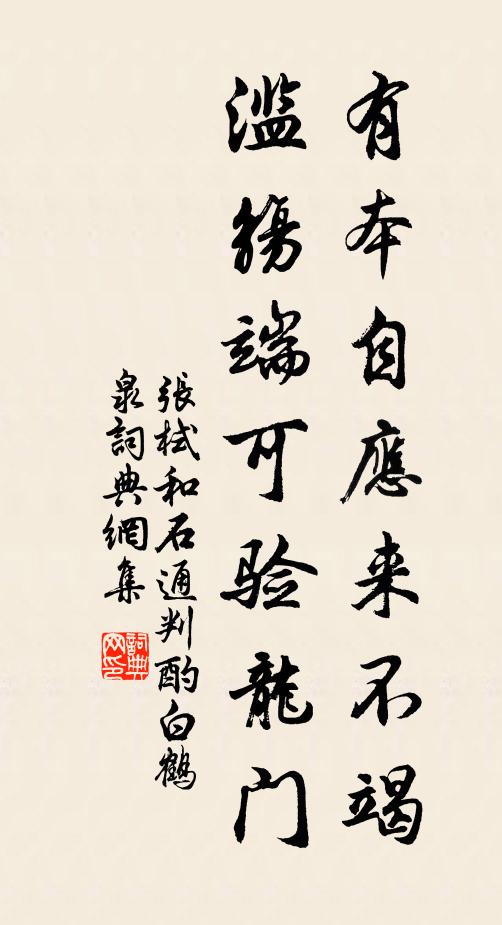 有本自應来不竭
濫觴端可验龍门
張栻和石通判酌白鶴
泉詞典網集
詞典
网印